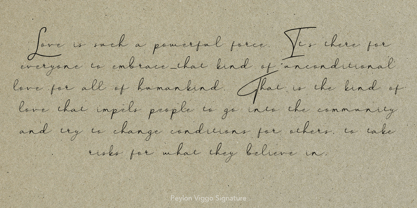 Love is such a powerful force. It's there for
everyone to embrace_that kind of unconditional
love for all of humankind. That is the kind of
love that impels people to go into the community
and try to change conditions for others, to take
risks for what they believe in.
Peylon Viggo Signature